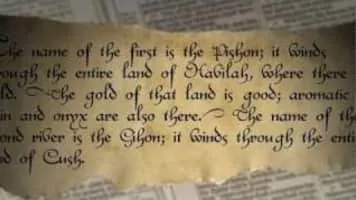 The name of the first is the Pishon; it winds
ough the entire land of Havilah, where there
ld. The gold of that land is good; aromatic
in and onyx are also there. The name of the
ond river is the Gihon; it winds through the enti
d of Cush.